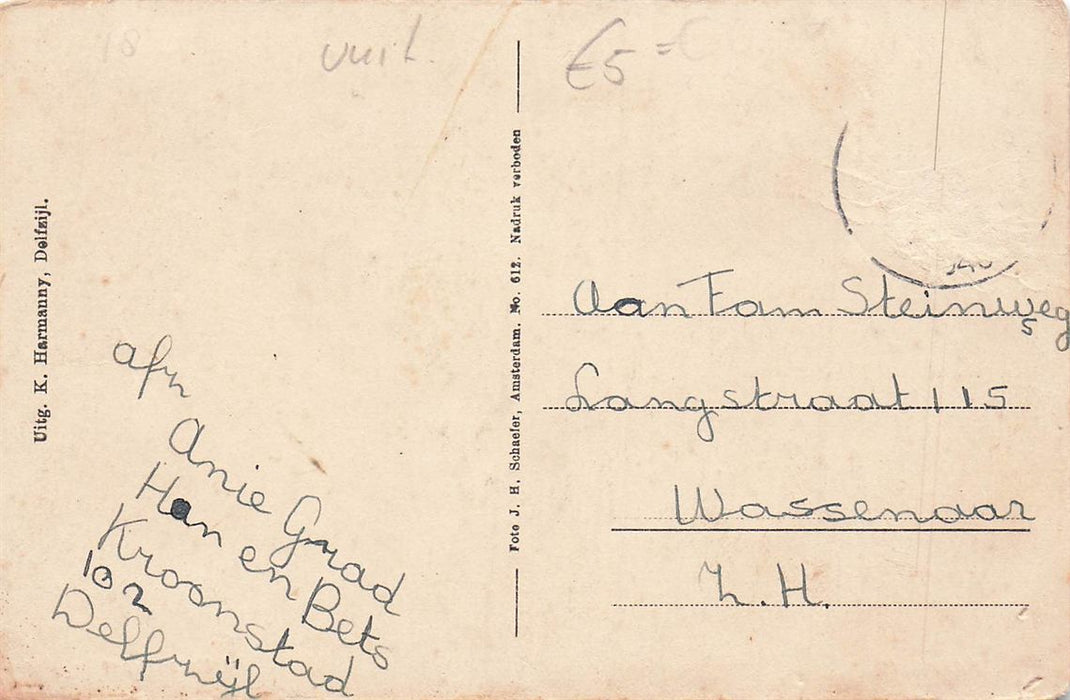 18
vuil.
€5=
Uitg. K. Harmanny, Delfzijl.
Foto J. H. Schaefer, Amsterdam. No. 612. Nadruk verboden
Aan Fam Steinweg
s
Langstraat 115
Wassenaar
Z.H.
afn
Anie Grad
Han en Bets
Kroonstad
102
Delfzijl